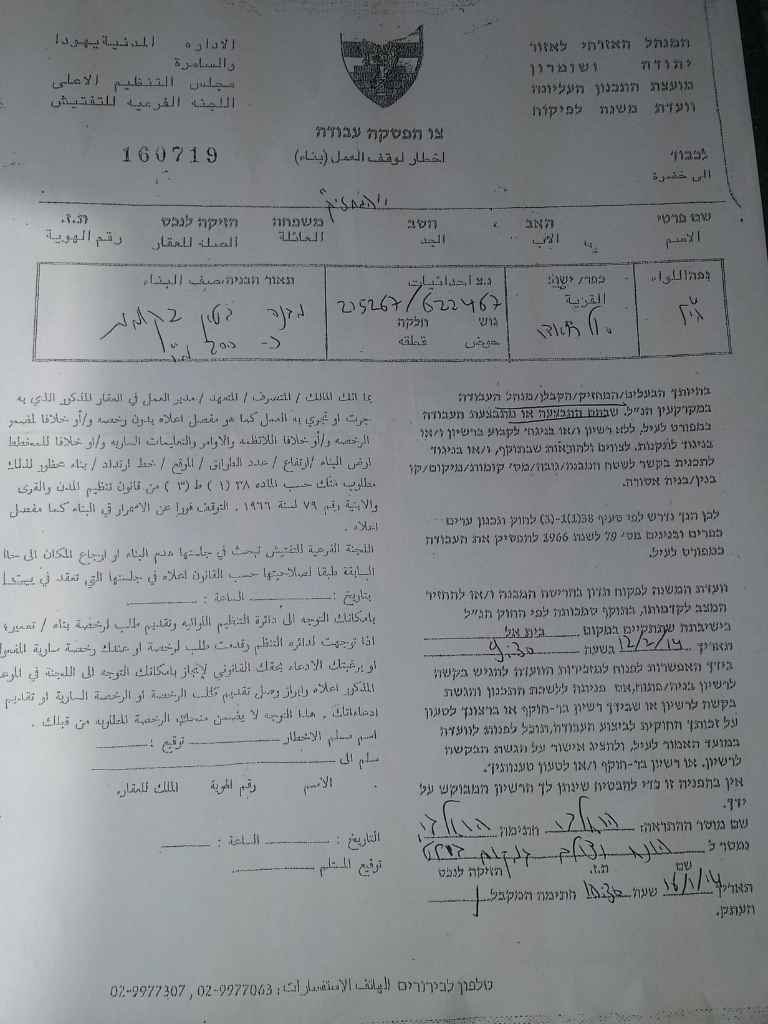 המנהל האזרחי לאזור
יהודה ושומרון
מועצת התכנון העליונה
וועדת משנה לפיקוח
الاداره المدنية يهودا
والسامرة
مجلس التنظيم الاعلى
اللجنه الفرعيه للتفتيش
צו הפסקה עבודה
اخطار لوقف العمل (بناء)
160719
לכבוד
الى حضرة
"המחזיק"
שם פרטי האב הסב משפחה הזיקה לנכס ת.ז.
الاسم الاب الجد العائلة الصلة للعقار رقم الهوية
נפה اللواء כפר/ישוב القرية נ.צ احداثيات תאור הבניה صنف البناء
215267/622467
גוש חלקה
حوض قطعة
מבנה
כ- 200
בהיותך הבעלים/המחזיק/הקבלן/מנהל העבודה
במקרקעין הנ"ל, שבהם התבצעה או מתבצעת העבודה
כמפורט לעיל, ללא רשיון ו/או בניגוד לקבוע ברשיון ו/או
בניגוד לתקנות, לצווים ולהוראות שבתוקף, ו/או בניגוד
לתכנית בקשר לשטח המבנה/גובה/מס' קומות/מיקום/קו
בנין/בניה אסורה.
לכן הנך נדרש לפי סעיף 38(1)(ג-1) לחוק תכנון ערים
כפרים ובנינים מס' 79 לשנת 1966 להפסיק את העבודה
כמפורט לעיל.
וועדת המשנה לפקוח תדון בהריסת המבנה ו/או להחזיר
המצב לקדמותו, בתוקף סמכותה לפי החוק הנ"ל
בישיבתה שתתקיים במקום בית אל
תאריך 12/2/14 בשעה 9:30
בידך האפשרות לפנות למזכירות הוועדה להגיש בקשה
לרשיון בניה/פתוח, אם פנית ללשכת התכנון והגשת
בקשה לרשיון או שבידך רשיון בר-תוקף או ברצונך לטעון
על זכותך החוקית לביצוע העבודה, תוכל לפנות לוועדה
במועד האמור לעיל, ולהציג אישור על הגשת הבקשה
לרשיון, או רשיון בר-תוקף ו/או לטעון טענותיך.
אין בהפניה זו כדי להבטיח שינתן לך הרשיון המבוקש על
ידך.
שם מוסר ההתראה: חתימה:
נמסר ל
שם ת.ז. הזיקה לנכס
תאריך 16/1/14 שעה 10:30 חתימה המקבל
העתק.
بما انك المالك / المتصرف / المتعهد / مدير العمل في العقار المذكور الذي به
جرت او تجري به العمل كما هو مفصل اعلاه بدون رخصه و/أو خلافا لمضمو
الرخصه و/أو خلافا للانظمه والاوامر والتعليمات الساريه و/او خلافا للمخطط
ارض البناء /ارتفاع / عدد الطوابق / الموقع / خط ارتداد / بناء محظور لذلك
مطلوب منك حسب الماده ٣٨ (١) ط (٣) من قانون تنظيم المدن والقرى
والابنية رقم ٧٩ لسنة ١٩٦٦ . التوقف فورا عن الاستمرار في البناء كما مفصل
اعلاه .
اللجنة الفرعية للتفتيش تبحث في جلستها هدم البناء او ارجاع المكان الى حاا
السابقة طبقا لصلاحيتها حسب القانون اعلاه في جلستها التي تعقد في بيت ا
بتاريخ : الساعة :
بامكانك التوجه الى دائرة التنظيم اللوائيه وتقديم طلب لرخصة بناء / تعميره
اذا توجهت لدائره التنظم وقدمت طلب لرخصة او عندك رخصة سارية المفعو
او برغبتك الادعاء بحقك القانوني لانجاز بامكانك التوجه الى اللجنة في الموعد
المذكور اعلاه وابراز وصل تقديم طلب الرخصة او الرخصة السارية او تقديم
ادعاءاتك . هذا التوجه لا يضمن منحك الرخصة المطلوبه من قبلك .
اسم مسلم الاخطار توقيع :
سلم الى
الاسم رقم الهوية المالك للعقار.
التاريخ : الساعة :
توقيع المستلم
טלפון לבירורים الهاتف الاستفسارات : 02-9977063 , 02-9977307